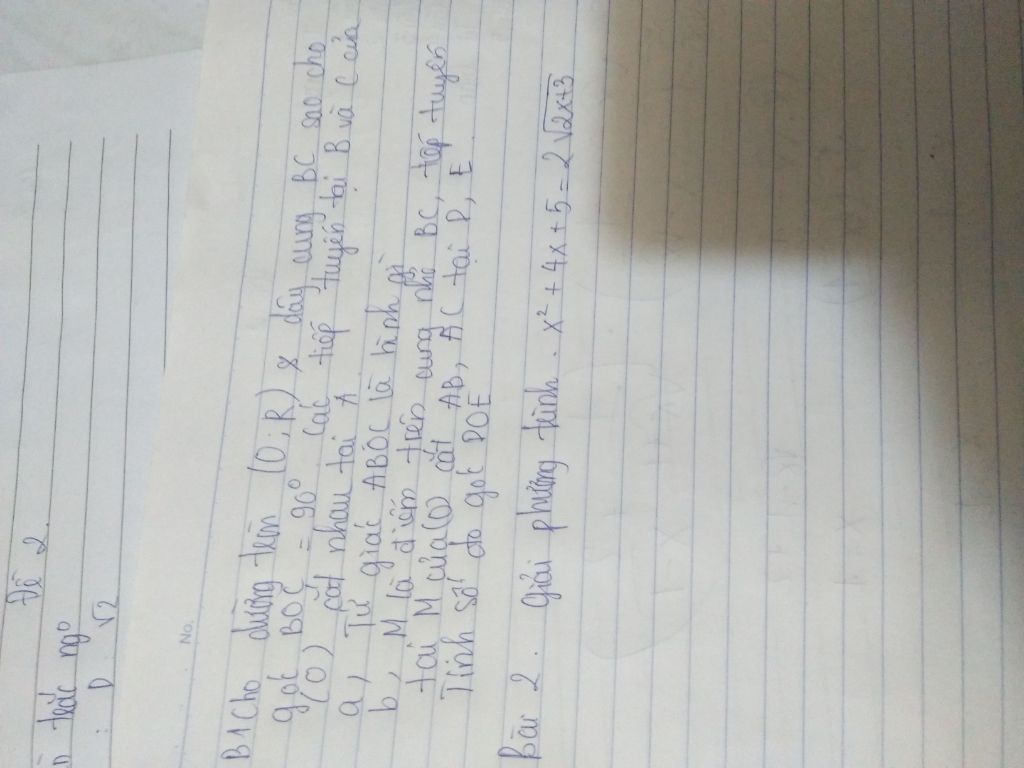 Đề 2.
trắc ngo
: D. √2
No.
B1 Cho đường tròn (O; R) & dây cung BC sao cho
góc BOC = 90° các tiếp tuyến tại B và C của
(O) cắt nhau tại A
a, Tứ giác ABOC là hình gì
b, M là điểm trên cung nhỏ BC, tiếp tuyến
tại M của (O) cắt AB, AC tại D, E
Tính số đo góc DOE
Bài 2. Giải phương trình. x² + 4x + 5 = 2√2x+3